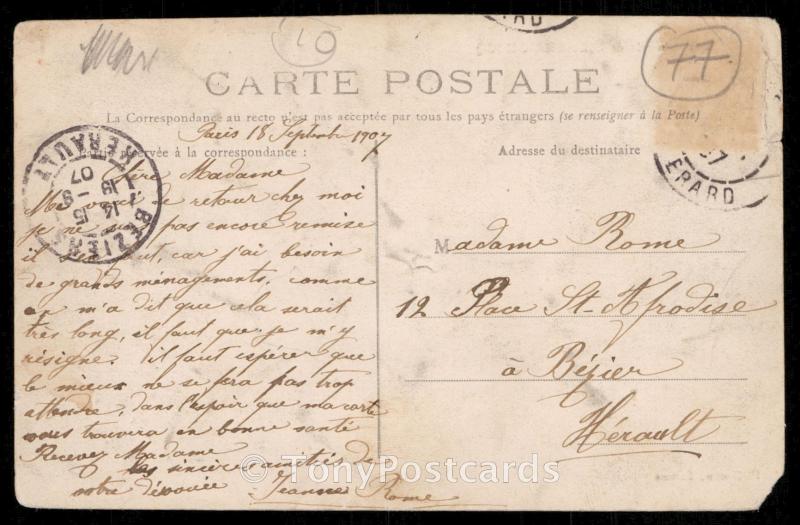 10
77
CARTE POSTALE
La Correspondance au recto n'est pas acceptée par tous les pays étrangers (se renseigner à la Poste)
Paris 18 Septembre 1907
Partie réservée à la correspondance :
Adresse du destinataire
Chère Madame
Me voici de retour chez moi
je ne suis pas encore remise
il faut, car j'ai besoin
de grands ménagements, comme
on m'a dit que cela serait
très long, il faut que je m'y
résigne. il faut espérer que
le mieux ne se fera pas trop
attendre, dans l'espoir que ma carte
vous trouvera en bonne santé
Recevez Madame
les sincères amitiés de
votre dévouée Jeanne Rome
Madame Rome
12 Place St-Afrodise
à Bézier
Hérault
BEZIERS
HERAULT
14 15
18 - 9
07
ERARD
ERARD
07
© TonyPostcards